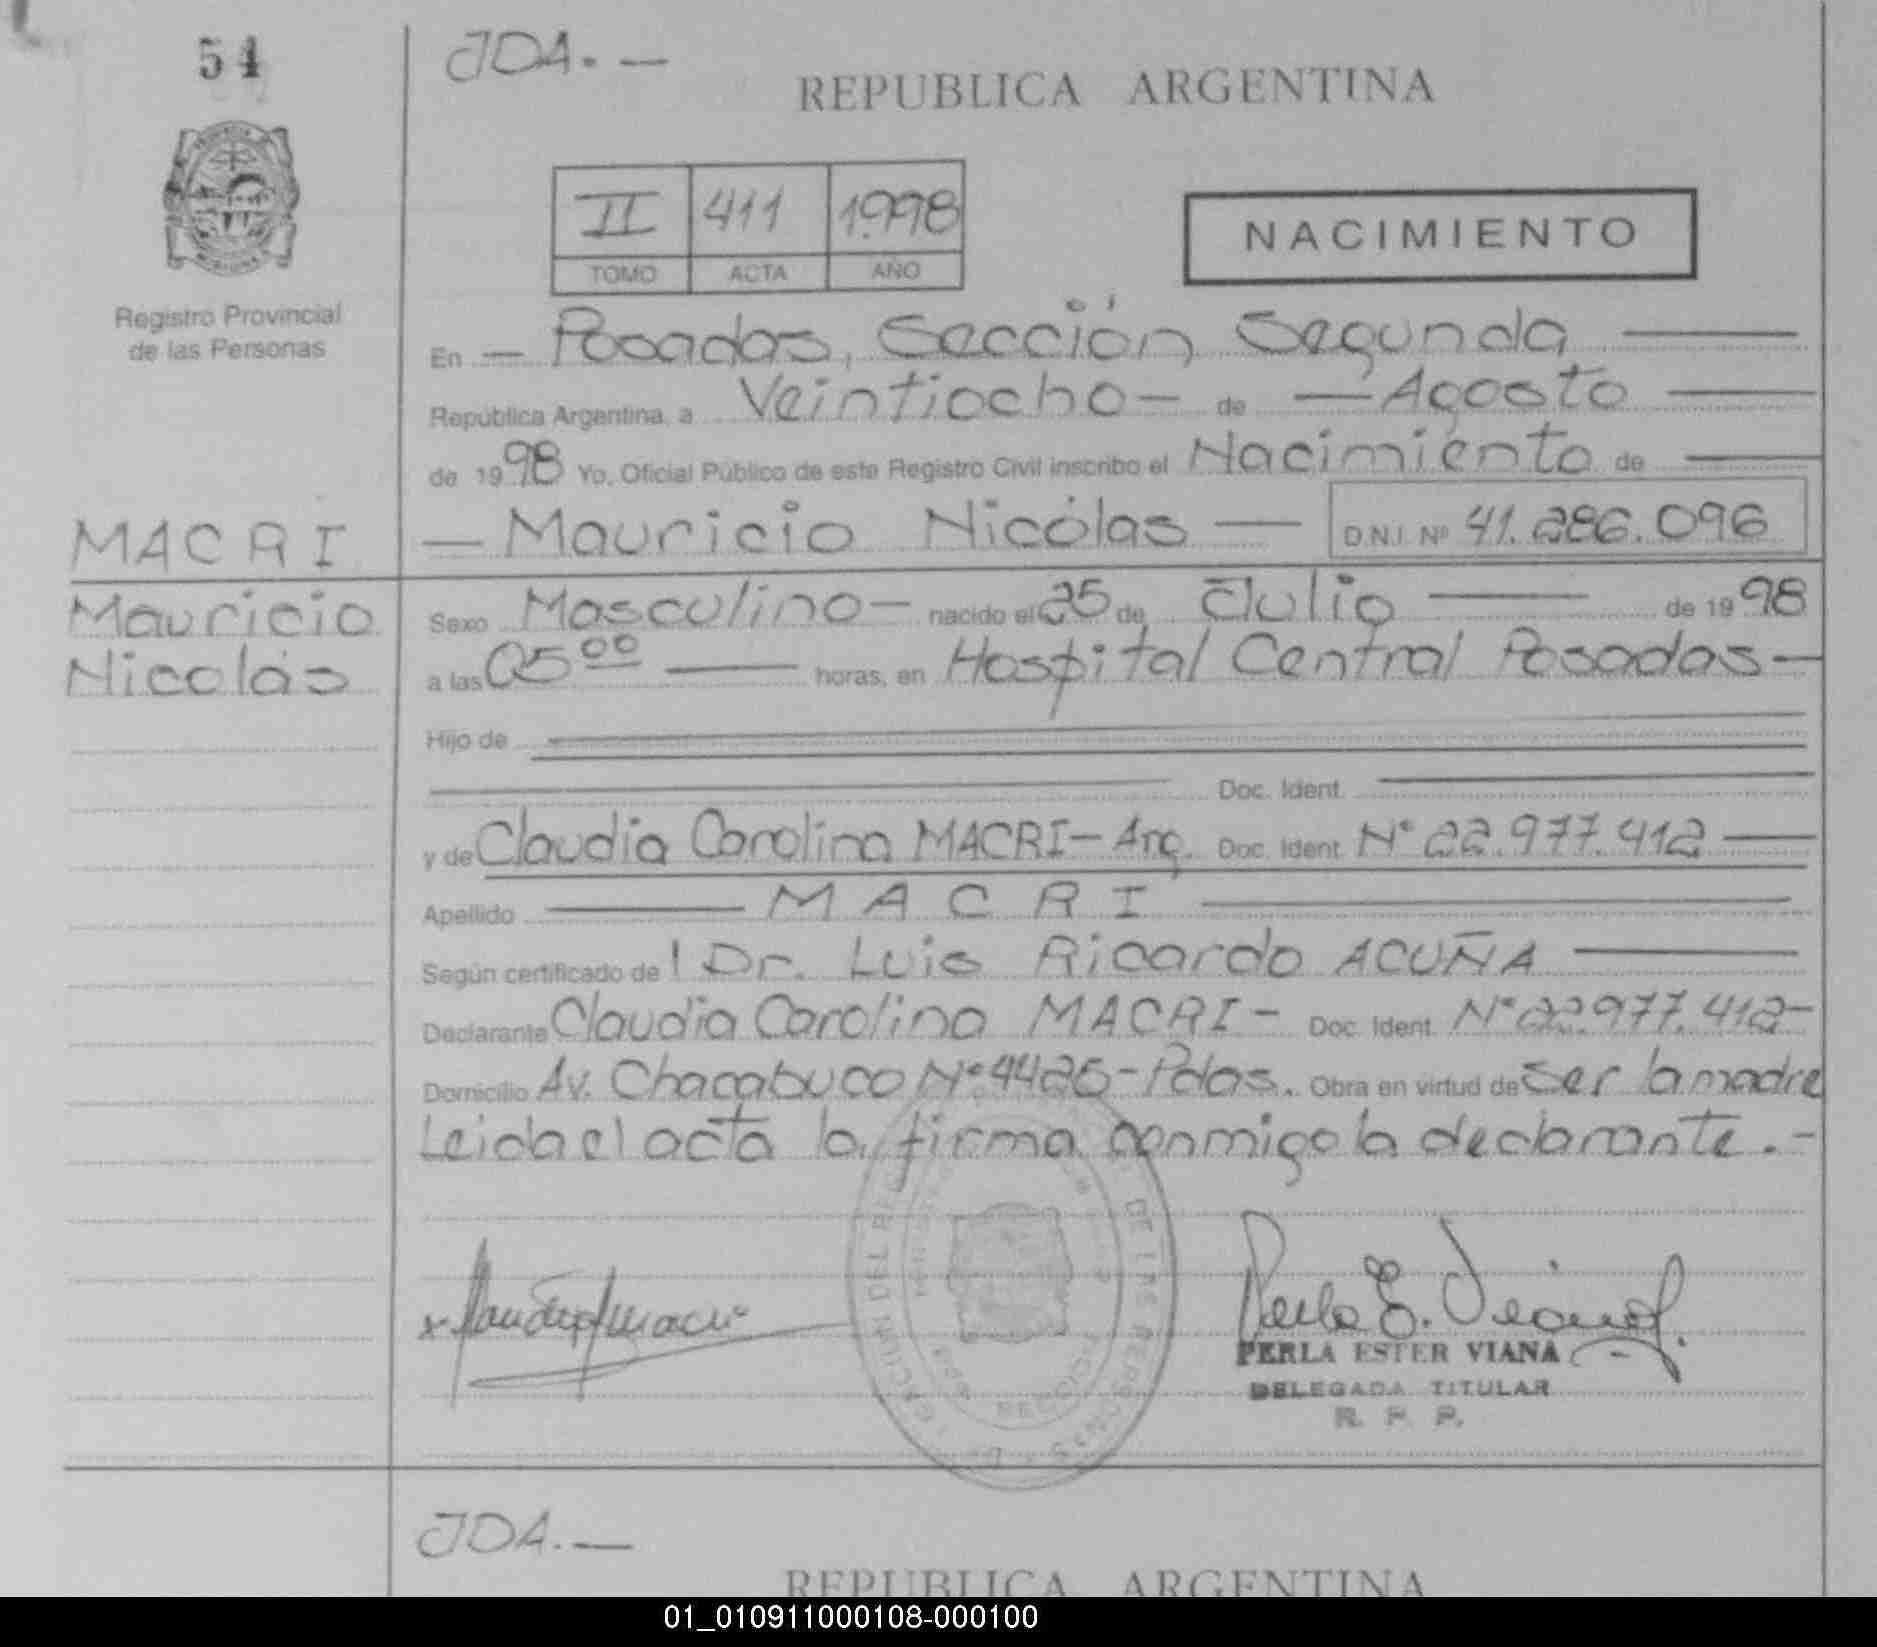 54
JDA.-
REPUBLICA ARGENTINA
II 411 1.998
TOMO ACTA AÑO
NACIMIENTO
Registro Provincial
de las Personas
En - Posadas, Sección Segunda
República Argentina, a Veintiocho - de - Agosto
de 1998 Yo, Oficial Público de este Registro Civil inscribo el Nacimiento de
MACRI
Mauricio
Nicolás
- Mauricio Nicólas - D.N.I. Nº 41.286.096
Sexo Masculino - nacido el 25 de Julio de 1998
a las 05⁰⁰ horas, en Hospital Central Posadas -
Hijo de
Doc. Ident.
y de Claudia Carolina MACRI - Arg. Doc. Ident. Nº 22.977.412
Apellido MACRI
Según certificado de l Dr. Luis Ricardo ACUÑA
Declarante Claudia Carolina MACRI - Doc. Ident. Nº 22.977.412-
Domicilio Av. Chacabuco Nº 4426 - Pdas. Obra en virtud de Ser la madre
Leida el acta la firma conmigo la declarante.-
Perla E. Viana
PERLA ESTER VIANA
DELEGADA TITULAR
R. P. P.
JDA.-
REPUBLICA ARGENTINA
01_010911000108-000100